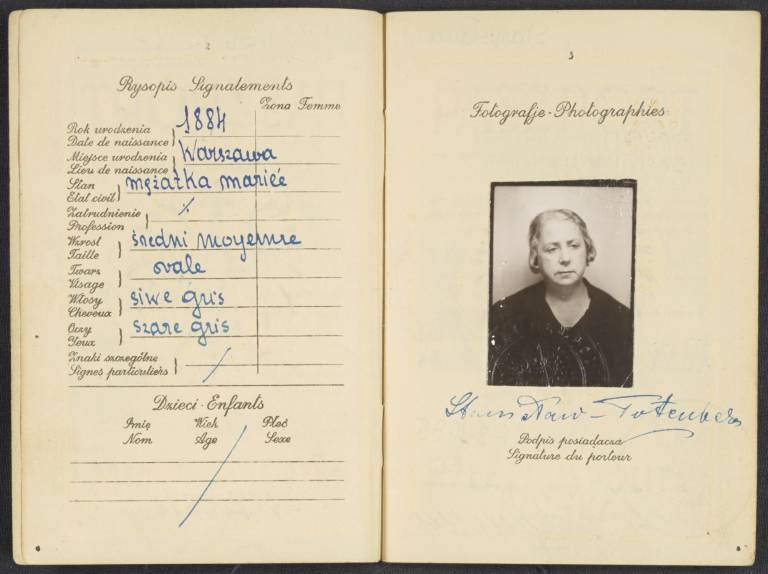 2
Rysopis Signalements
Żona Femme
Rok urodzenia
Date de naissance
1884
Miejsce urodzenia
Lieu de naissance
Warszawa
Stan
Etat civil
mężatka mariée
Zatrudnienie
Profession
Wzrost
Taille
średni moyenne
Twarz
Visage
ovale
Włosy
Cheveux
siwe gris
Oczy
Yeux
szare gris
Znaki szczególne
Signes particuliers
Dzieci - Enfants
Imię Wiek Płeć
Nom Age Sexe
3
Fotografje - Photographies
Podpis posiadacza
Signature du porteur